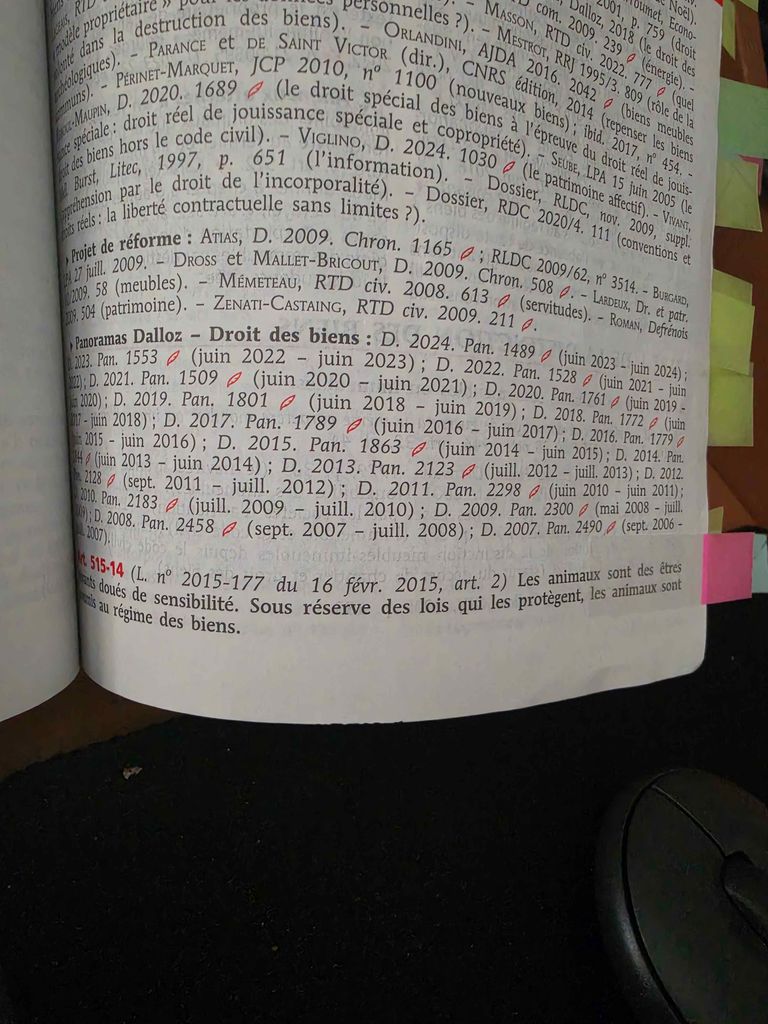 2001, p. 759 (droit
Dalloz, 2018 (le droit des
personnelles ?). – MASSON, RTD civ. 2022. 777 (quel
modèle propriétaire » pour
com. 2009. 239 (énergie). –
dans la destruction des biens). – ORLANDINI, AJDA 2016. 2042 (biens meubles
MESTROT, RRJ 1995/3. 809 (rôle de la
– PARANCE et DE SAINT VICTOR (dir.), CNRS édition, 2014 (repenser les biens
– PÉRINET-MARQUET, JCP 2010, nº 1100 (nouveaux biens) ; ibid. 2017, nº 454. –
MAUPIN, D. 2020. 1689 (le droit spécial des biens à l'épreuve du droit réel de jouis-
spéciale : droit réel de jouissance spéciale et copropriété). – SEUBE, LPA 15 juin 2005 (le
des biens hors le code civil). – VIGLINO, D. 2024. 1030 (le patrimoine affectif). – VIVANT,
Burst, Litec, 1997, p. 651 (l'information). – Dossier, RLDC, nov. 2009, suppl.
par le droit de l'incorporalité). – Dossier, RDC 2020/4. 111 (conventions et
réels : la liberté contractuelle sans limites ?).
Projet de réforme : ATIAS, D. 2009. Chron. 1165 ; RLDC 2009/62, nº 3514. – BURGARD,
27 juill. 2009. – DROSS et MALLET-BRICOUT, D. 2009. Chron. 508. – LARDEUX, Dr. et patr.
2009. 58 (meubles). – MÉMETEAU, RTD civ. 2008. 613 (servitudes). – ROMAN, Defrénois
2009. 504 (patrimoine). – ZENATI-CASTAING, RTD civ. 2009. 211.
Panoramas Dalloz – Droit des biens : D. 2024. Pan. 1489 (juin 2023 – juin 2024) ;
2023. Pan. 1553 (juin 2022 – juin 2023) ; D. 2022. Pan. 1528 (juin 2021 – juin
D. 2021. Pan. 1509 (juin 2020 – juin 2021) ; D. 2020. Pan. 1761 (juin 2019 –
2020) ; D. 2019. Pan. 1801 (juin 2018 – juin 2019) ; D. 2018. Pan. 1772 (juin
– juin 2018) ; D. 2017. Pan. 1789 (juin 2016 – juin 2017) ; D. 2016. Pan. 1779
2015 – juin 2016) ; D. 2015. Pan. 1863 (juin 2014 – juin 2015) ; D. 2014. Pan.
(juin 2013 – juin 2014) ; D. 2013. Pan. 2123 (juill. 2012 – juill. 2013) ; D. 2012.
2128 (sept. 2011 – juill. 2012) ; D. 2011. Pan. 2298 (juin 2010 – juin 2011) ;
2010. Pan. 2183 (juill. 2009 – juill. 2010) ; D. 2009. Pan. 2300 (mai 2008 – juill.
D. 2008. Pan. 2458 (sept. 2007 – juill. 2008) ; D. 2007. Pan. 2490 (sept. 2006 –
2007).
515-14 (L. nº 2015-177 du 16 févr. 2015, art. 2) Les animaux sont des êtres
doués de sensibilité. Sous réserve des lois qui les protègent, les animaux sont
au régime des biens.